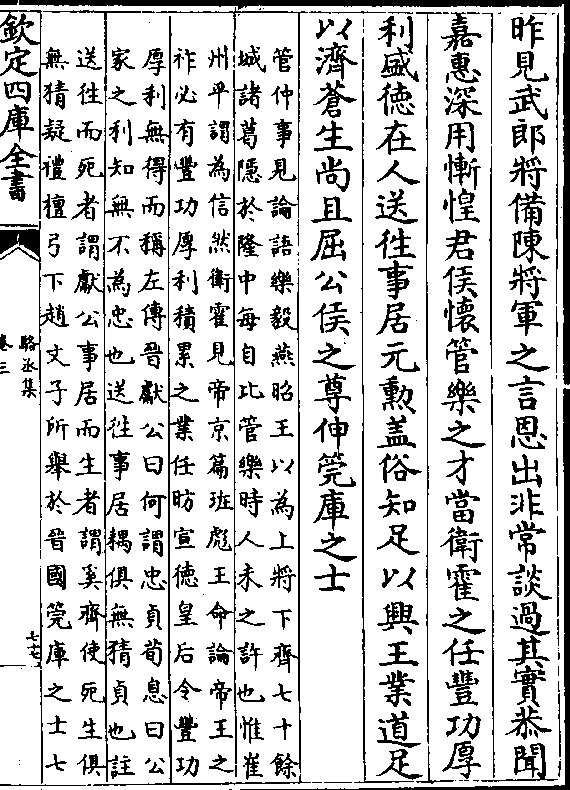 昨見武郎將備陳將軍之言恩出非常談過其實恭聞
嘉惠深用慚惶君侯懷管樂之才當衛霍之任豐功厚
利盛德在人送往事居元勲盖俗知足以興王業道足
以濟蒼生尚且屈公侯之尊伸筦庫之士
管仲事見論語樂毅燕昭王以為上將下齊七十餘
城諸葛隱於隆中每自比管樂時人未之許也惟崔
州平謂為信然衛霍見帝京篇班彪王命論帝王之
祚必有豐功厚利積累之業任昉宣德皇后令豐功
厚利無得而稱左傳晉獻公曰何謂忠貞荀息曰公
家之利知無不為忠也送往事居耦俱無猜貞也註
送往而死者謂獻公事居而生者謂奚齊使死生俱
無猜疑禮檀弓下趙文子所舉於晉國筦庫之士七
欽定四庫全書
駱丞集
卷三
七